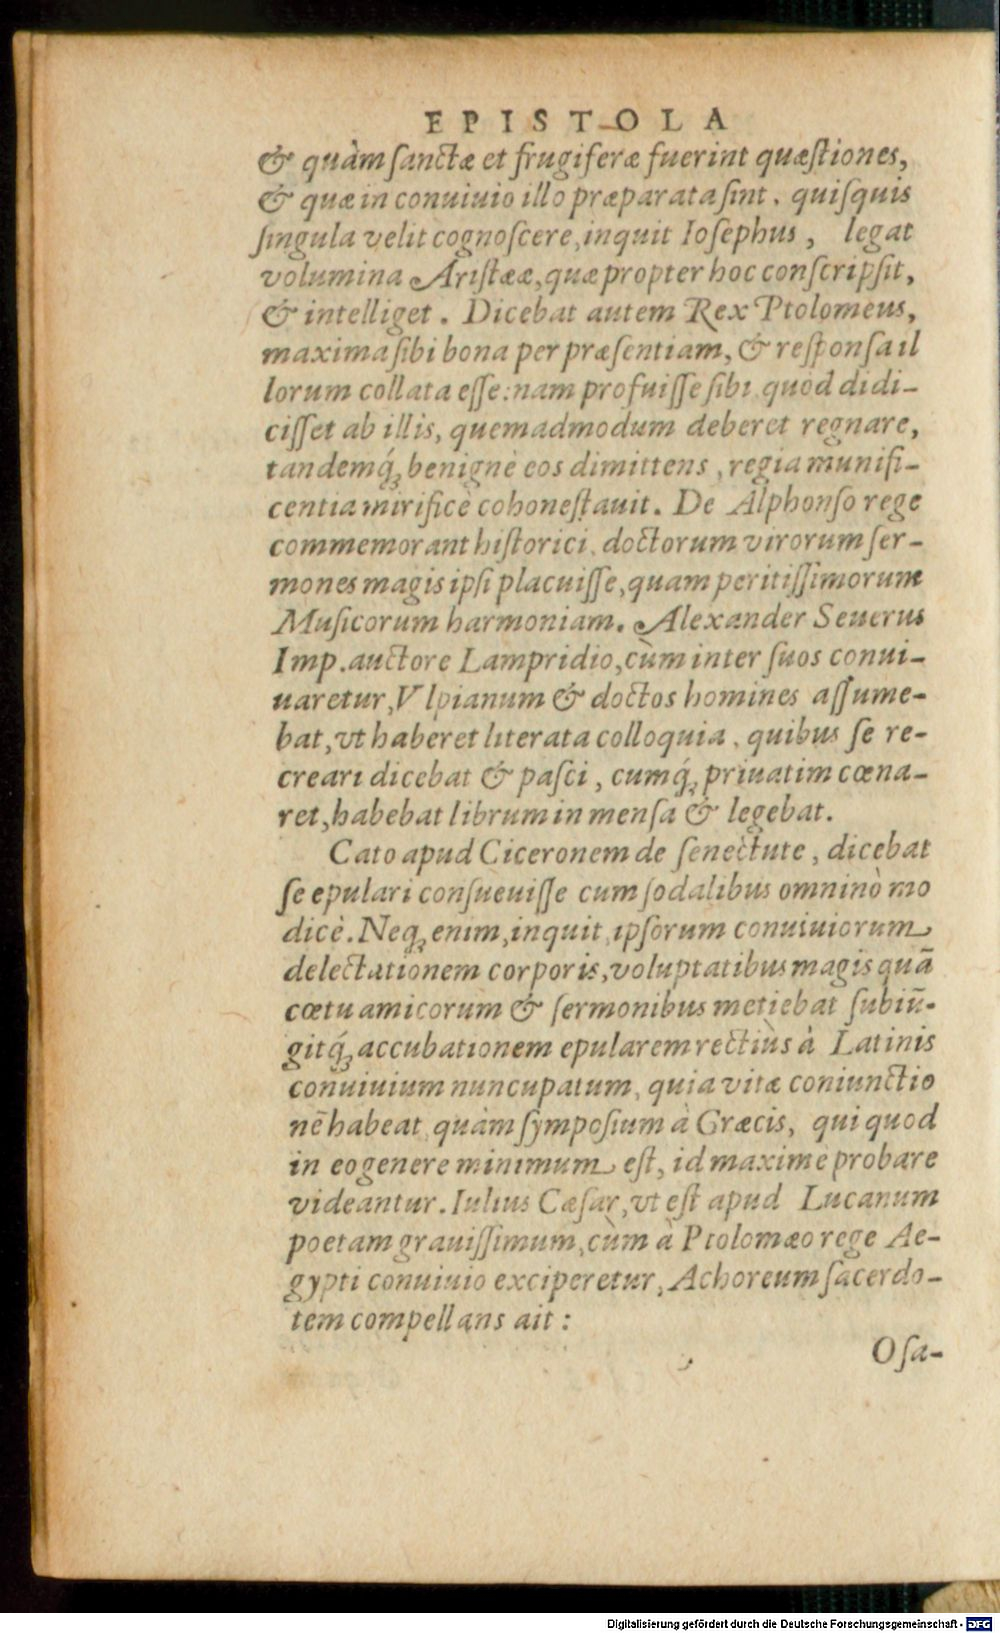 EPISTOLA
& quàm ſanctæ et frugiferæ fuerint quæſtiones,
& quæ in conuiuio illo præparata ſint. quiſquis
ſingula velit cognoſcere, inquit Ioſephus, legat
volumina Ariſtææ, quæ propter hoc conſcripſit,
& intelliget. Dicebat autem Rex Ptolomeus,
maxima ſibi bona per præſentiam, & reſponſa il
lorum collata eſſe: nam profuiſſe ſibi quòd didi-
ciſſet ab illis, quemadmodum deberet regnare,
tandemq́ꝫ benignè eos dimittens, regia munifi-
centia mirificè cohoneſtauit. De Alphonſo rege
commemorant hiſtorici, doctorum virorum ſer-
mones magis ipſi placuiſſe, quam peritiſſimorum
Muſicorum harmoniam. Alexander Seuerus
Imp. auctore Lampridio, cùm inter ſuos conui-
uaretur, Vlpianum & doctos homines aſſume-
bat, vt haberet literata colloquia, quibus ſe re-
creari dicebat & paſci, cumq́ꝫ priuatim cœna-
ret, habebat librum in menſa & legebat.
Cato apud Ciceronem de ſenectute, dicebat
ſe epulari conſueuiſſe cum ſodalibus omninò mo
dicè. Neqꝫ enim, inquit, ipſorum conuiuiorum
delectationem corporis, voluptatibus magis quā
cœtu amicorum & ſermonibus metiebat ſubiū-
gitq́ꝫ accubationem epularem rectiùs à Latinis
conuiuium nuncupatum, quia vitæ coniunctio
nē habeat, quàm ſympoſium à Græcis, qui quod
in eo genere minimum eſt, id maximè probare
videantur. Iulius Cæſar, vt eſt apud Lucanum
poetam grauiſſimum, cùm à Ptolomæo rege Ae-
gypti conuiuio exciperetur, Achoreum ſacerdo-
tem compellans ait:
O ſa-
Digitalisierung gefördert durch die Deutsche Forschungsgemeinschaft - DFG